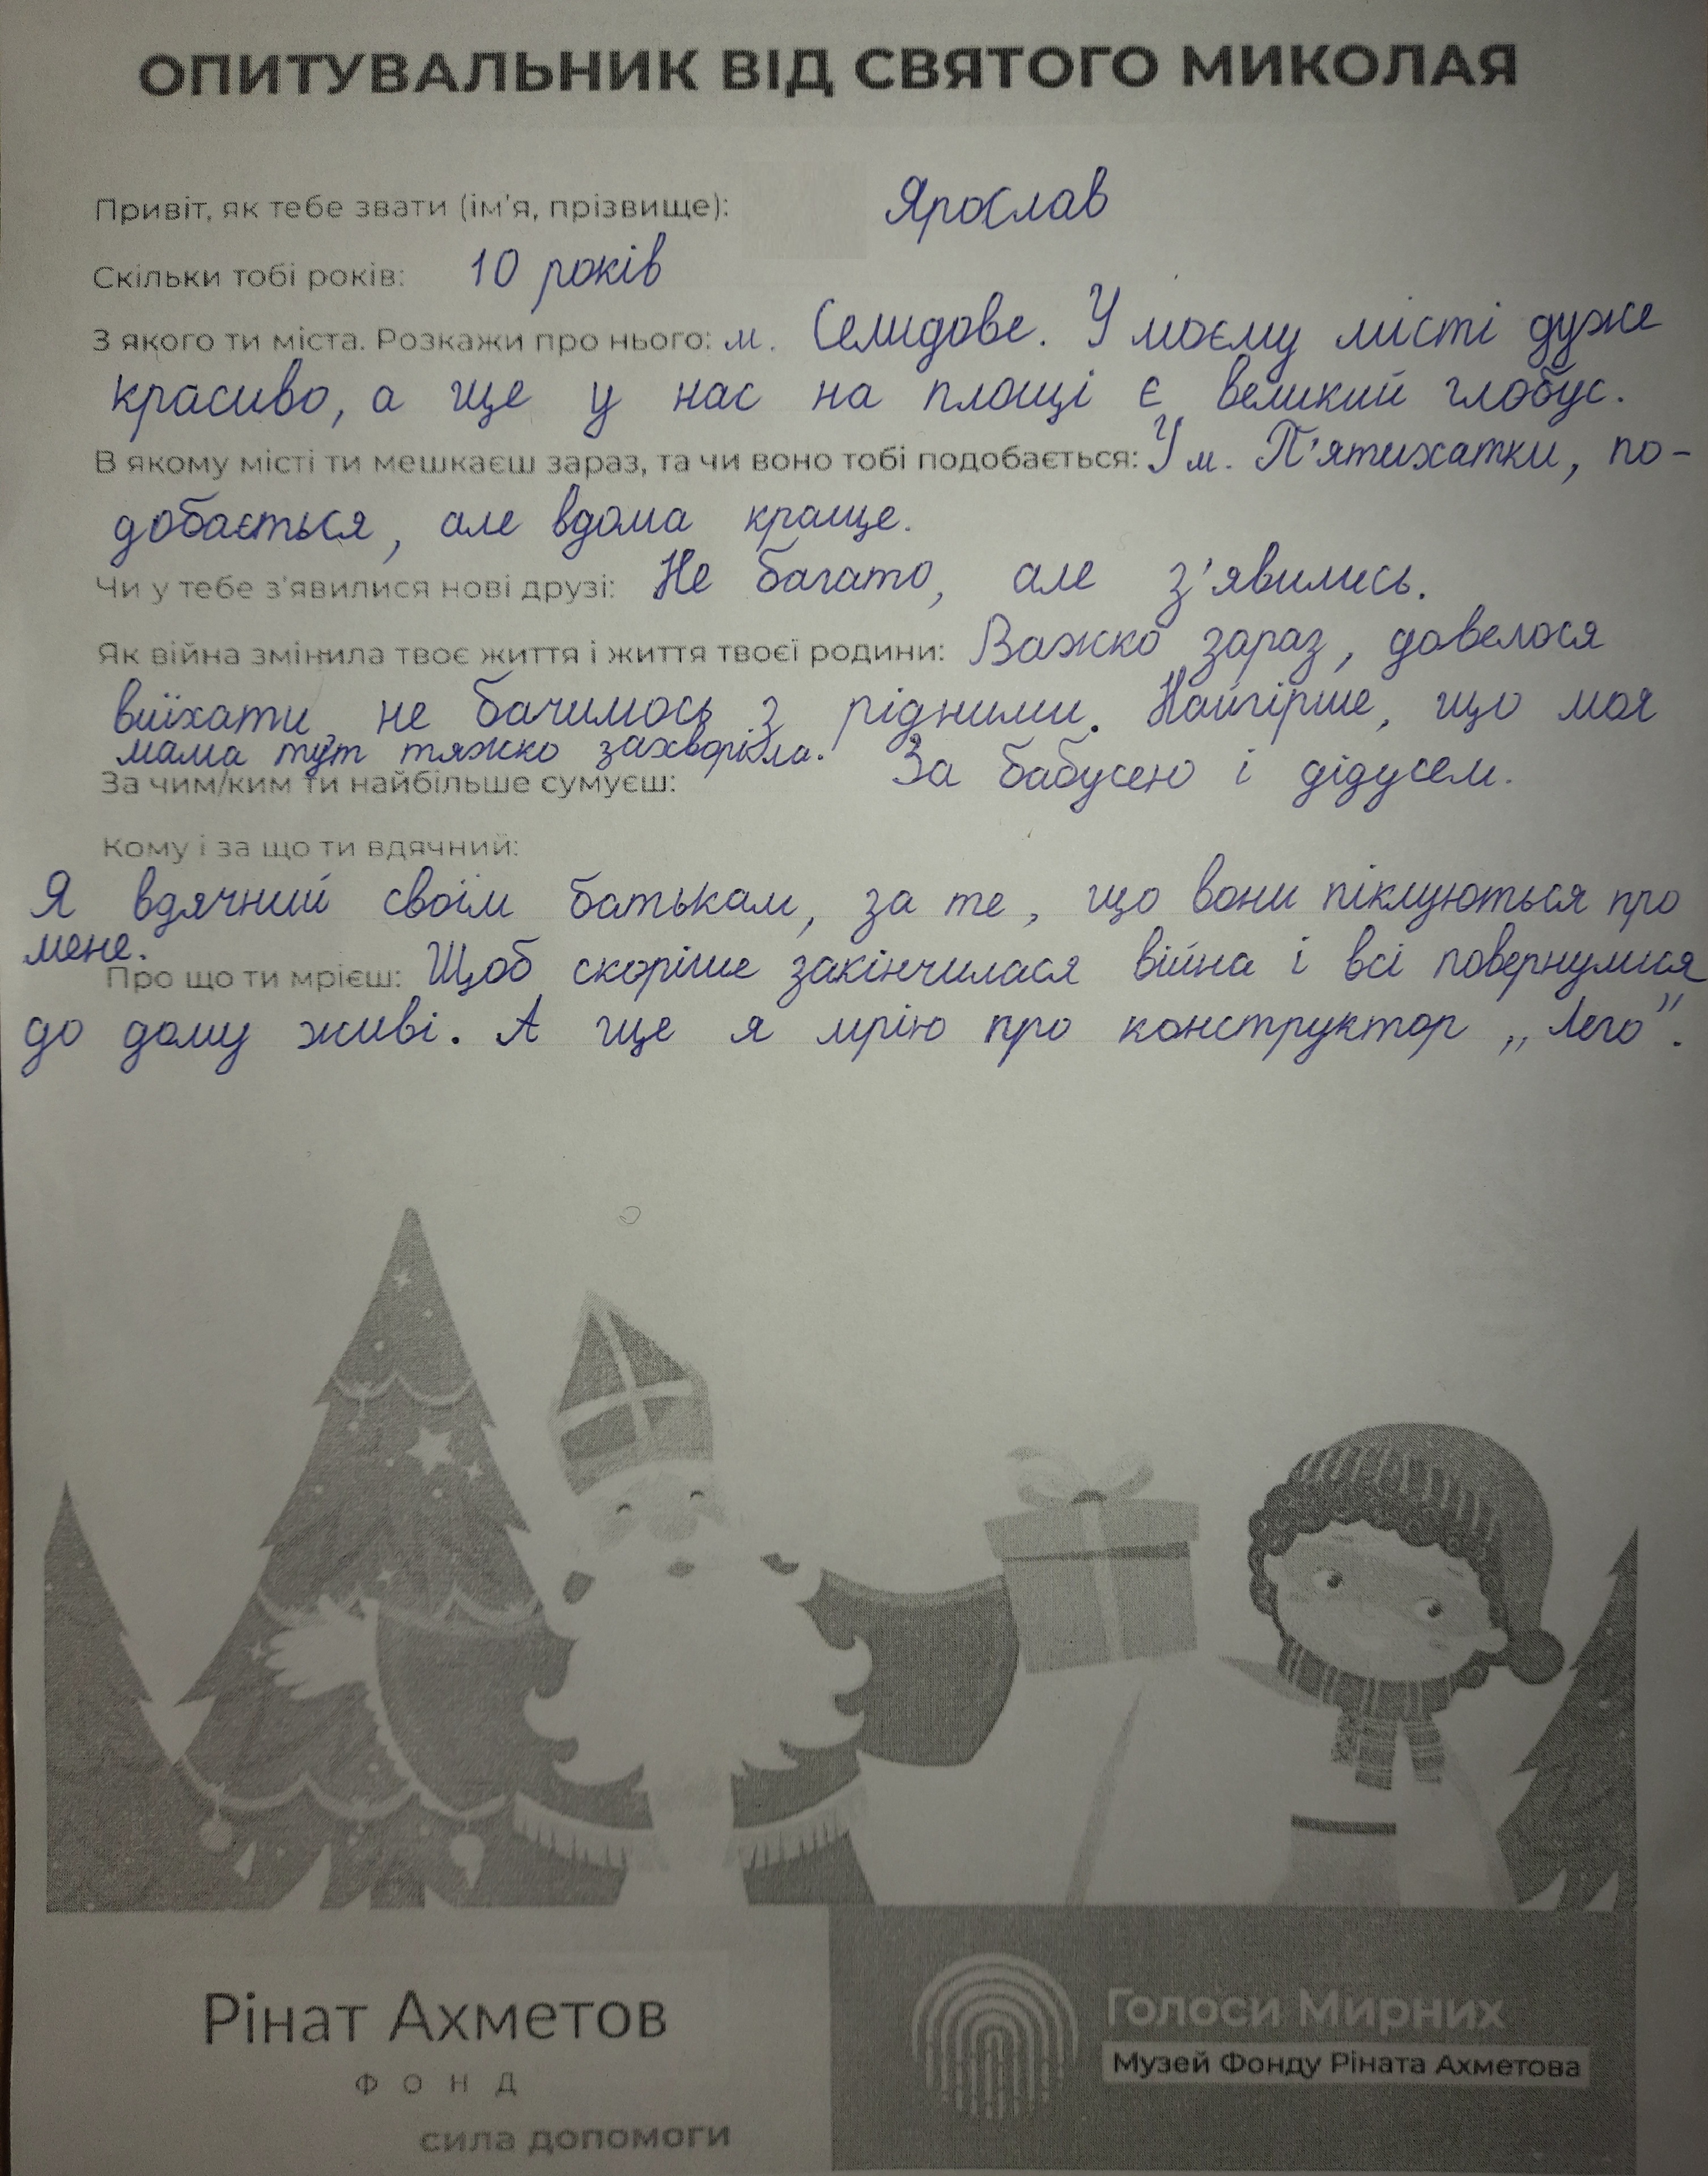 ОПИТУВАЛЬНИК ВІД СВЯТОГО МИКОЛАЯ
Привіт, як тебе звати (ім'я, прізвище): Ярослав
Скільки тобі років: 10 років
З якого ти міста. Розкажи про нього: м. Селидове. У моєму місті дуже
красиво, а ще у нас на площі є великий глобус.
В якому місті ти мешкаєш зараз, та чи воно тобі подобається: У м. П'ятихатки, по-
добається, але вдома краще.
Чи у тебе з'явилися нові друзі: Не багато, але з'явились.
Як війна змінила твоє життя і життя твоєї родини: Важко зараз, довелося
виїхати, не бачимось з рідними. Найгірше, що моя
мама тут тяжко захворіла.
За чим/ким ти найбільше сумуєш: За бабусею і дідусем.
Кому і за що ти вдячний:
Я вдячний своїм батькам, за те, що вони піклуються про
мене.
Про що ти мрієш: Щоб скоріше закінчилася війна і всі повернулися
до дому живі. А ще я мрію про конструктор „Лего".
Рінат Ахметов
ФОНД
сила допомоги
Голоси Мирних
Музей Фонду Ріната Ахметова